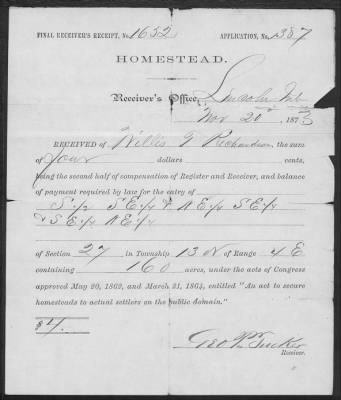 FINAL RECEIVER'S RECEIPT, No. 1652 APPLICATION, No. 1387
HOMESTEAD.
Receiver's Office, Lincoln Neb
Nov 20th, 1873
RECEIVED of Willis T Richardson, the sum
of four dollars cents,
being the second half of compensation of Register and Receiver, and balance
of payment required by law for the entry of
S ½ S E ¼ & N E ¼ S E ¼
& S E ¼ N E ¼
of Section 27 in Township 13 N of Range 4 E
containing 160 acres, under the acts of Congress
approved May 20, 1862, and March 21, 1864, entitled "An act to secure
homesteads to actual settlers on the public domain."
$4.
Geo P Tucker
Receiver.